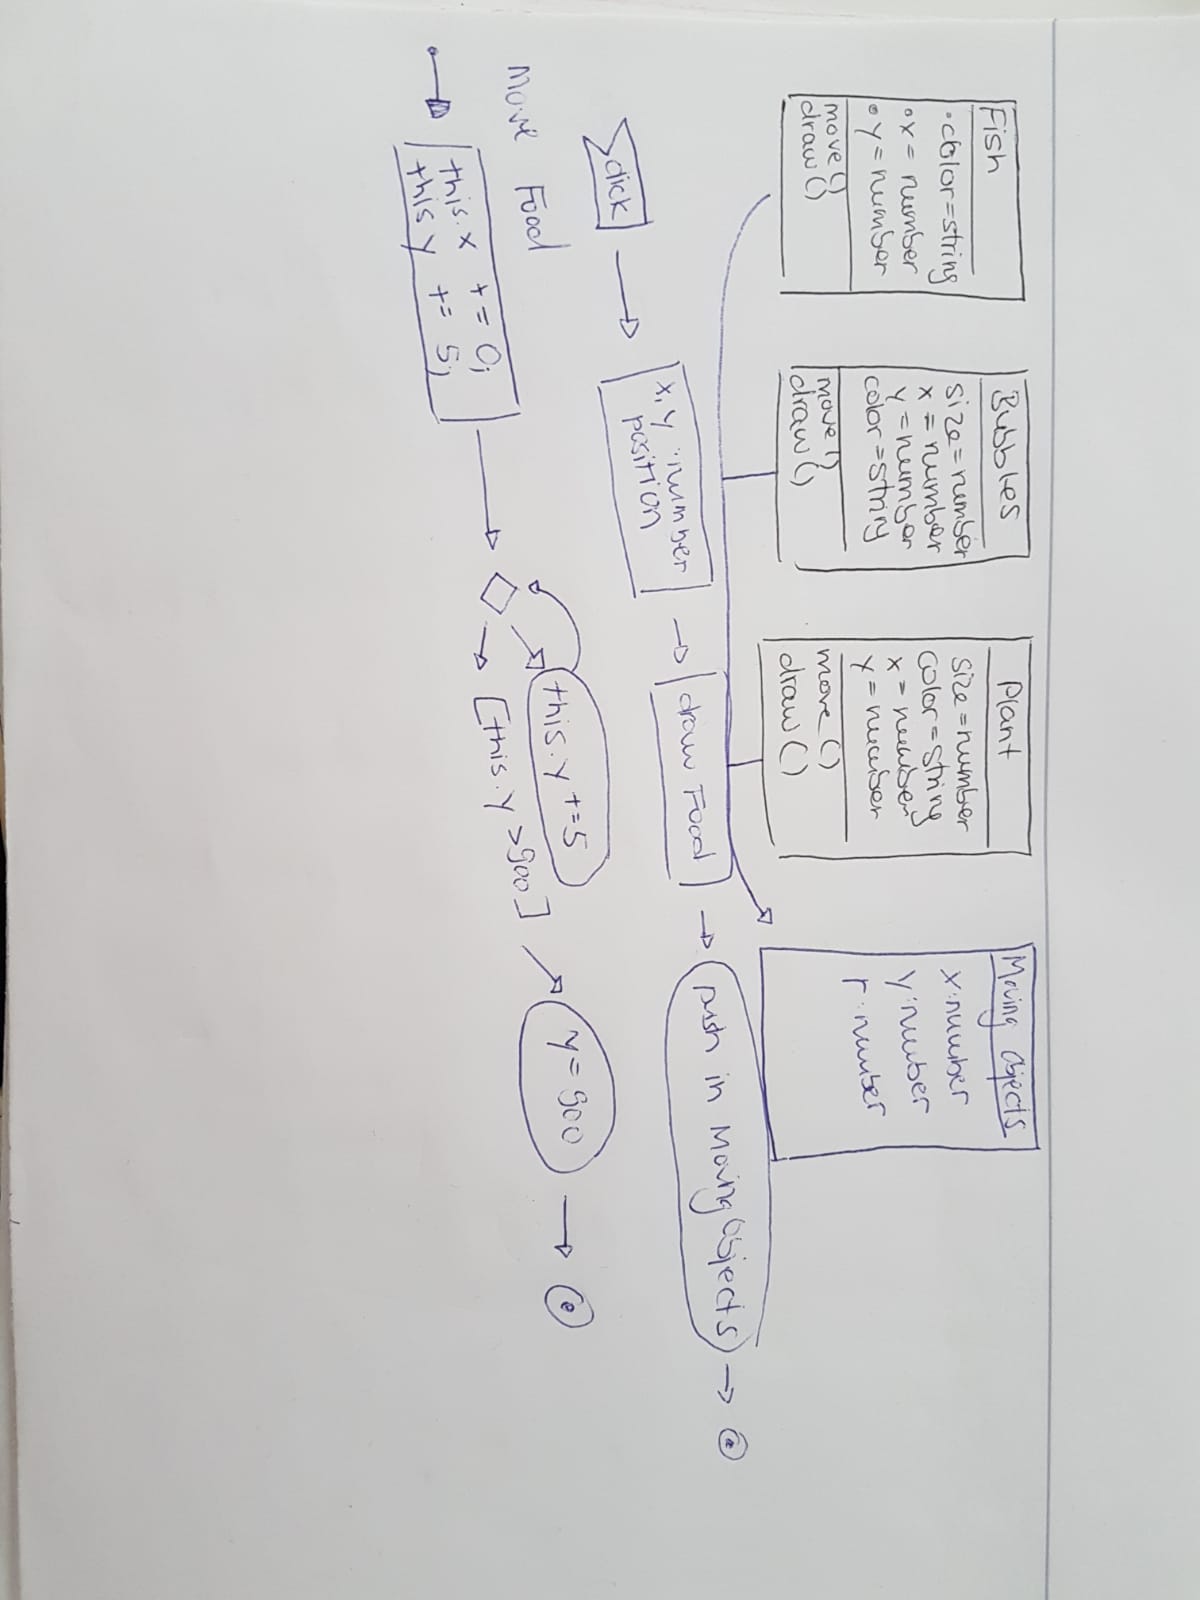 Fish
• color=string
• x = number
• y = number
move()
draw()
Bubbles
size=number
x = number
y = number
color=string
move()
draw()
Plant
size=number
color=string
x = number
y = number
move()
draw()
Moving Objects
x:number
y:number
r:number
click
x, y :number
position
draw Food
push in Moving Objects
Move Food
this.x += 0;
this y += 5;
this.y +=5
[this.y >900]
y = 900